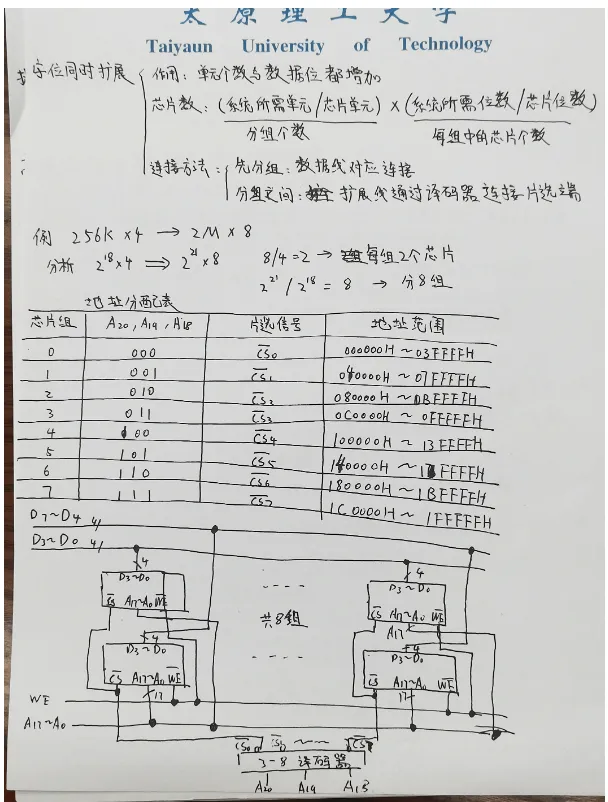 太原理工大学
Taiyaun University of Technology
字位同时扩展
作用: 单元个数与数据位都增加
芯片数: (系统所需单元/芯片单元) × (系统所需位数/芯片位数)
分组个数
每组中的芯片个数
连接方法:
先分组: 数据线对应连接
分组之间: 扩展线通过译码器连接片选端
例 256K×4 → 2M×8
分析 2^18×4 ⇒ 2^21×8 8/4=2 → 每组2个芯片
2^21/2^18 = 8 → 分8组
地址分配表
芯片组 A20, A19, A18 片选信号 地址范围
0 000 C̅S̅0 000000H~03FFFFH
1 001 C̅S̅1 040000H~07FFFFH
2 010 C̅S̅2 080000H~0BFFFFH
3 011 C̅S̅3 0C0000H~0FFFFFH
4 100 C̅S̅4 100000H~13FFFFH
5 101 C̅S̅5 140000H~17FFFFH
6 110 C̅S̅6 180000H~1BFFFFH
7 111 C̅S̅7 1C0000H~1FFFFFH
D7~D4 4/
D3~D0 4/
4 4
D3~D0 D3~D0
C̅S̅ A17~A0 W̅E̅ 共8组 C̅S̅ A17~A0 W̅E̅
A17
4 4
D3~D0 D3~D0
C̅S̅ A17~A0 W̅E̅ C̅S̅ A17~A0 W̅E̅
17 17
WE
A17~A0
C̅S̅0 C̅S̅1 C̅S̅7
3-8 译码器
A20 A19 A18